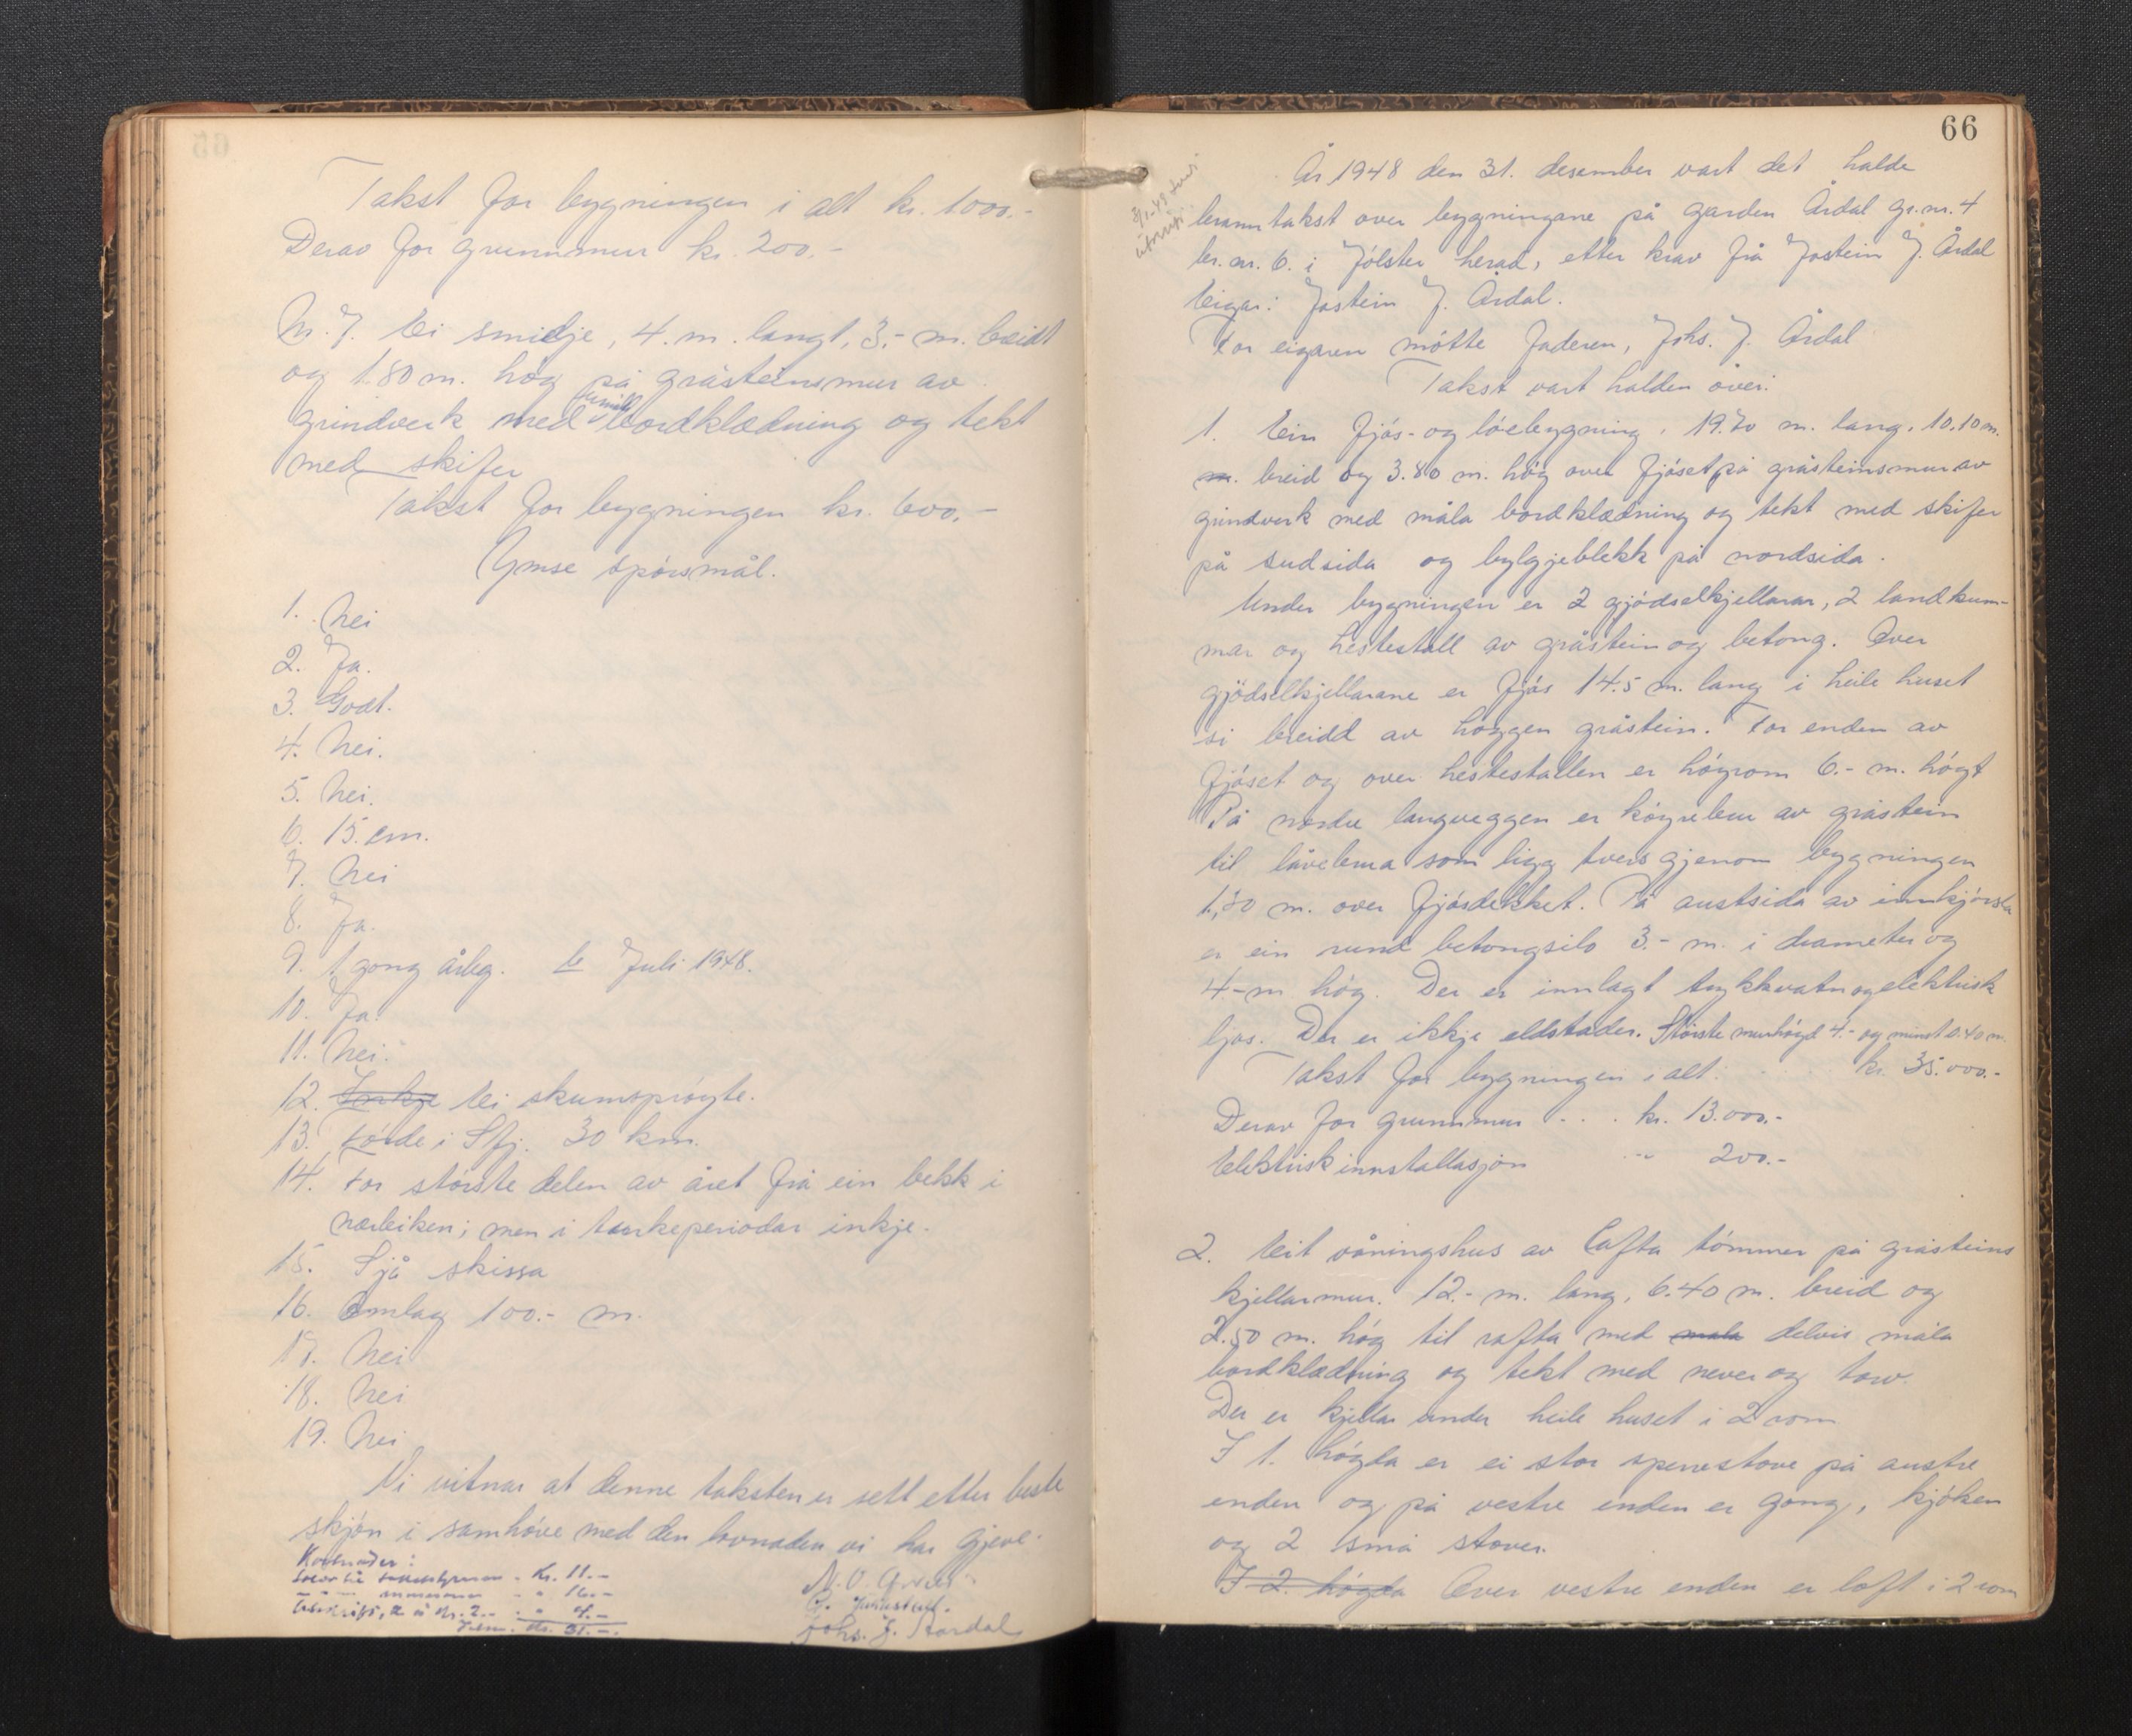 Takst for bygningen i alt kr. 1000.-
Derav for grunnmur kr. 200.-
Nr. 7. Ei smidje, 4. m. langt, 3.- m. breidt
og 1.80 m. høg på gråsteinsmur av
grindverk med umåla bordklædning og tekt
med skifer
Takst for bygningen kr. 600.-
Ymse spórsmål.
1. Nei
2. Ja.
3. Godt.
4. Nei.
5. Nei.
6. 15. cm.
7. Nei
8. Ja.
9. 1 gong årleg. 6 Juli 1948.
10. Ja.
11. Nei.
12. Inkje Ei skumsprøyte.
13. Førde i Sfj. 30 km.
14. For største delen av året frå ein bekk i
nærleiken; men i tørkeperiodar inkje.
15. Sjå skissa
16. Omlag 100.- m.
17. Nei
18. Nei
19. Nei
Vi vitnar at denne taksten er sett etter beste
skjøn i samhøve med den lovnaden vi har gjeve.
Kostnader:
kr. 11.-
" 16.-
Utskrift, 2 à kr. 2.- " 4.-
Kr. 31.-
Johs. J. Årdal
66
År 1948 den 31. desember vart det halde
branntakst over bygningane på garden Årdal gr.nr. 4
br.nr. 6. i Jólster herad, etter krav frå Jostein J. Årdal
Eigar: Jostein J. Årdal.
For eigaren møtte faderen, Johs. J. Årdal
Takst vart halden over:
1. Ein fjós- og lóebygning, 19.70 m. lang, 10.10 m.
m. breid og 3.80 m. høg over fjóset på gråsteinsmur av
grindverk med måla bordklædning og tekt med skifer
på sudsida og bylgjeblekk på nordsida.
Under bygningen er 2 gjødselkjellarar, 2 landkum-
mar og hestestall av gråstein og betong. Over
gjødselkjellarane er fjós 14.5 m. lang i heile huset
si breidd av hoggen gråstein. For enden av
fjóset og over hestestallen er høyrom 6.- m. høgt
På nordre langveggen er køyrebru av gråstein
til låvebrua som ligg tvers gjenom bygningen
1,80 m. over fjósdekket. På austsida av innkjørsla
er ein rund betongsilo 3.- m. i diameter og
4.- m høg. Der er innlagt trykkvatn og elektrisk
ljos. Der er ikkje eldstader. Største murhøgd 4.- og minst 0.40 m.
Takst for bygningen i alt: kr. 35.000.-
Derav for grunnmur . . . kr. 13.000.-
Elektrisk innstallasjon " 200.-
2. Eit våningshus av lafta tømmer på gråsteins
kjellarmur. 12.- m. lang, 6.40 m. breid og
2.50 m. høg til rafta med måla delvis måla
bordklædning og tekt med never og torv.
Der er kjellar under heile huset i 2 rom
I 1. høgda er ei stor sperrestove på austre
enden og på vestre enden er gong, kjøken
og 2 små stover.
I 2. høgda Over vestre enden er loft i 2 rom